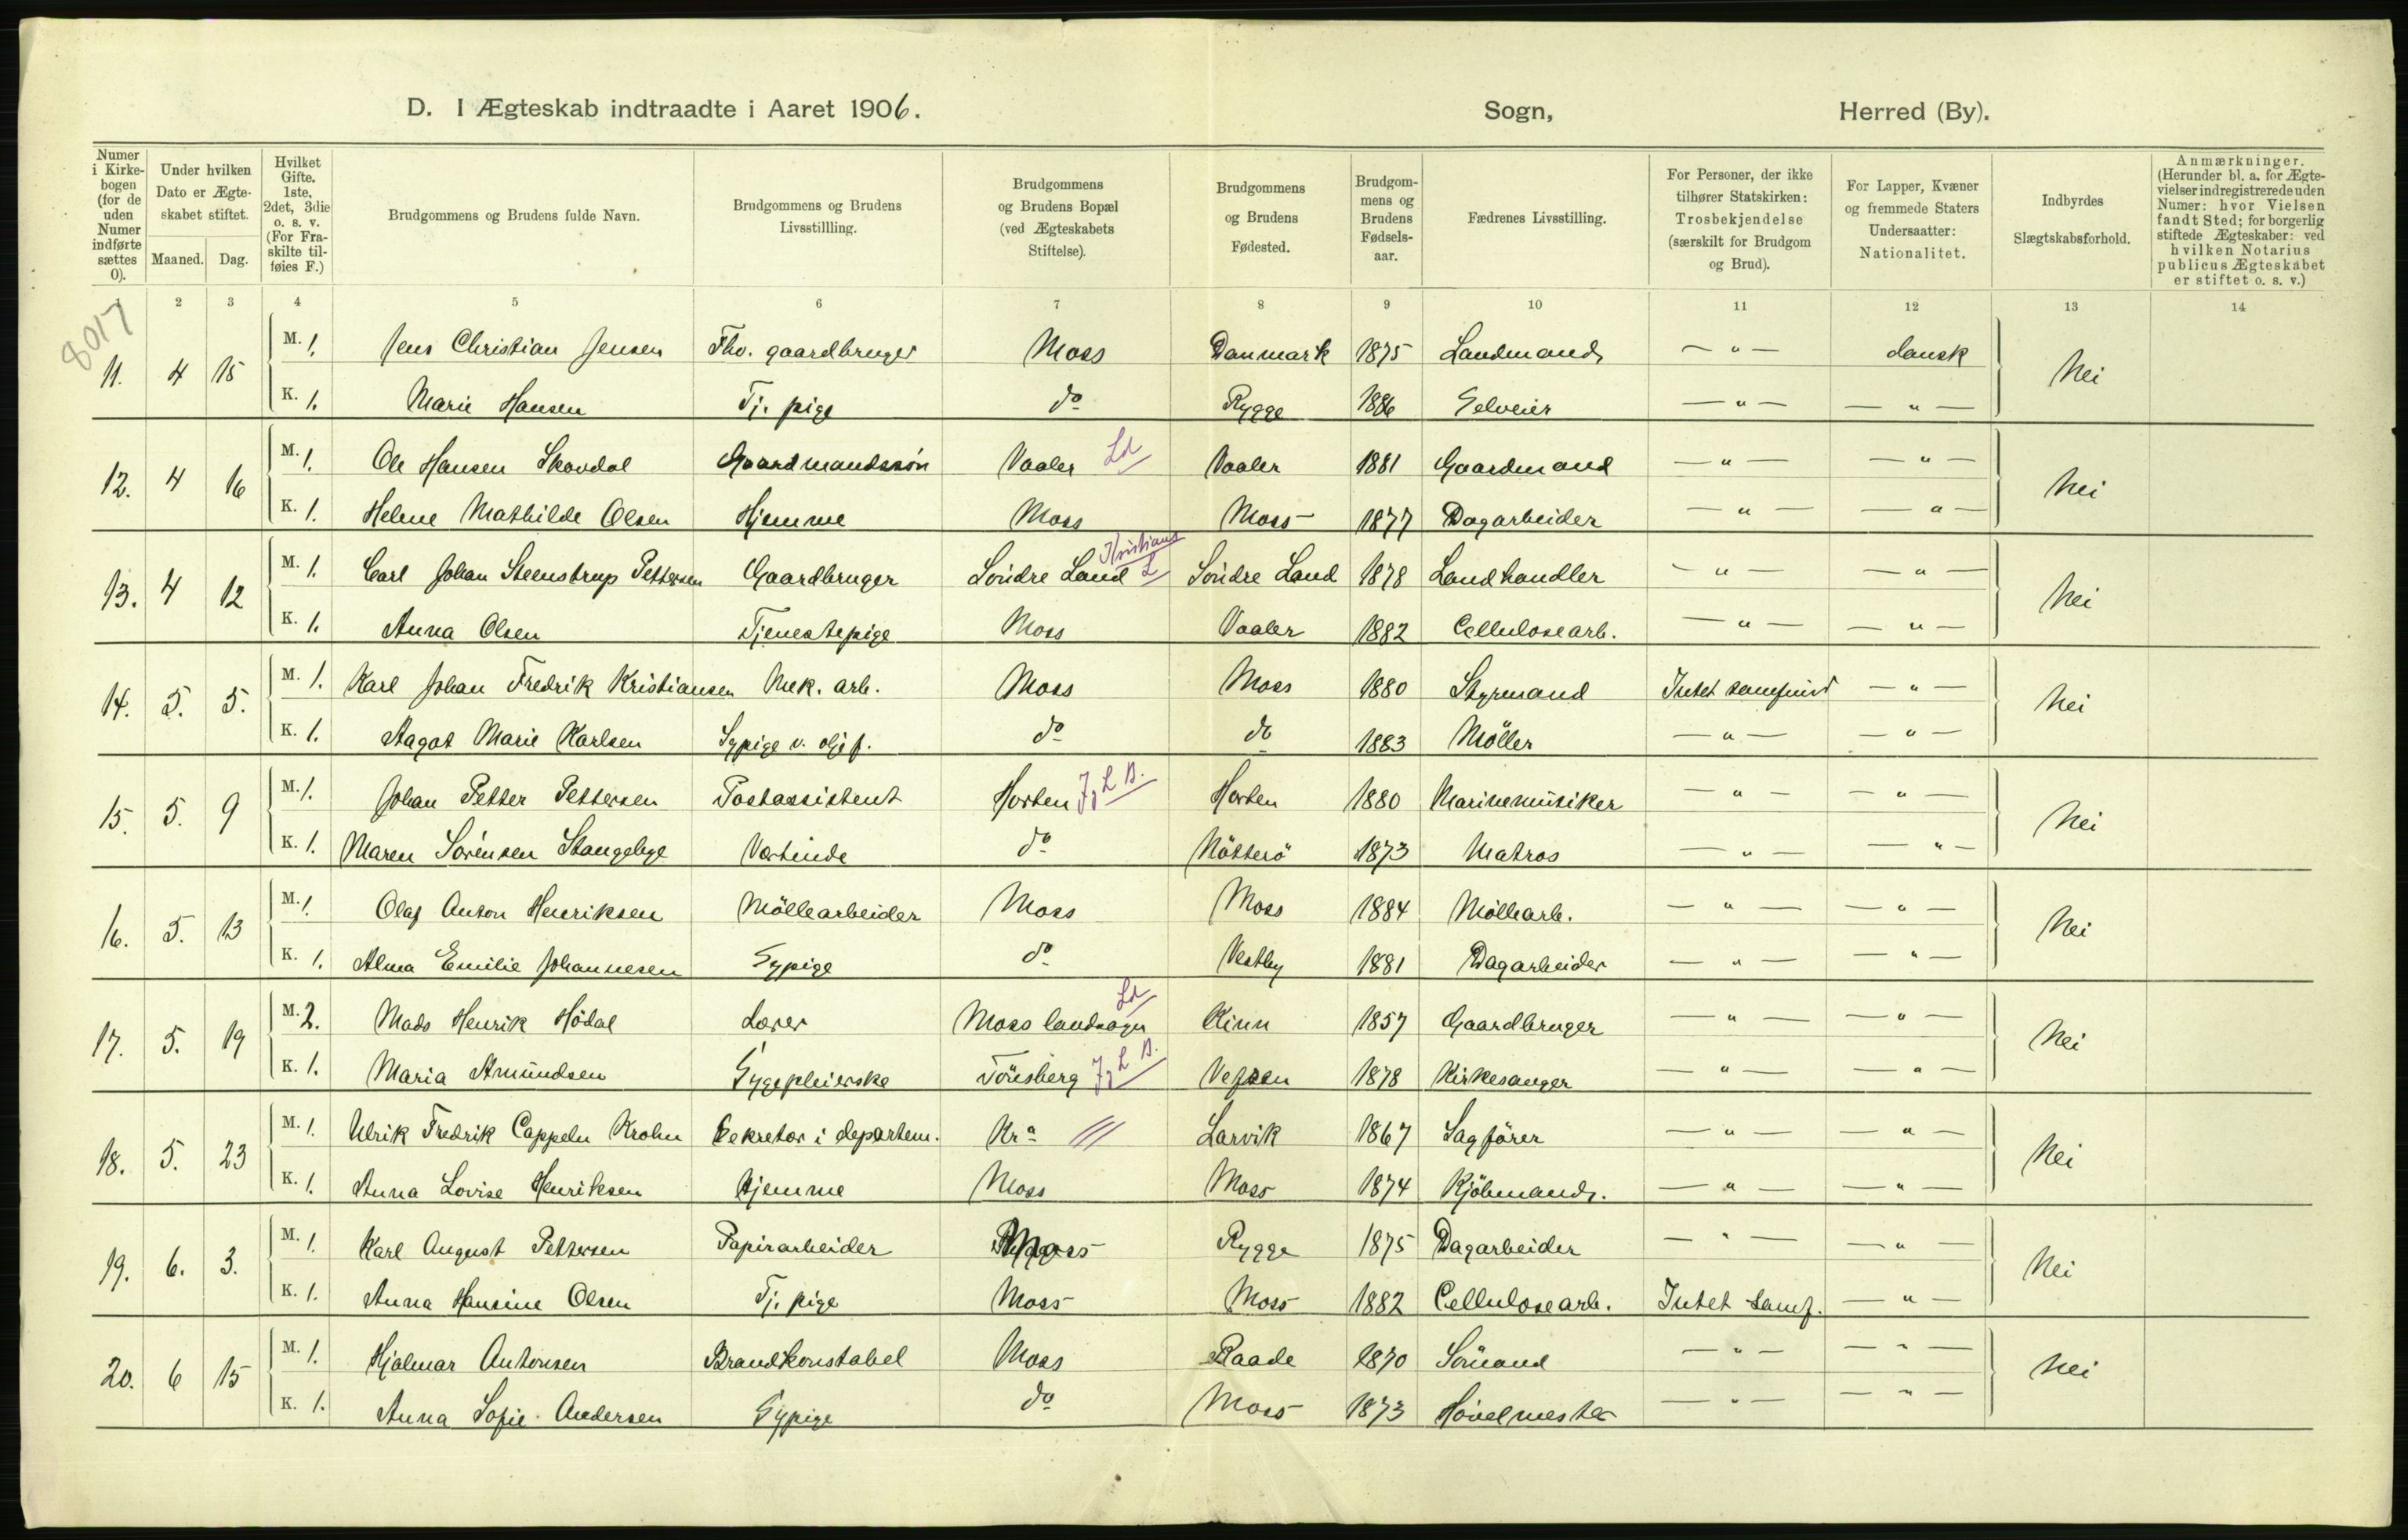 D. I Ægteskab indtraadte i Aaret 1906. Sogn, Herred (By).
Numer i Kirkebogen (for de uden Numer indførte sættes 0).
Under hvilken Dato er Ægteskabet stiftet.
Maaned. Dag.
Hvilket Gifte. 1ste, 2det, 3die o. s. v. (For Fraskilte tilføies F.)
Brudgommens og Brudens fulde Navn.
Brudgommens og Brudens Livsstillling.
Brudgommens og Brudens Bopæl (ved Ægteskabets Stiftelse).
Brudgommens og Brudens Fødested.
Brudgommens og Brudens Fødselsaar.
Fædrenes Livsstilling.
For Personer, der ikke tilhører Statskirken: Trosbekjendelse (særskilt for Brudgom og Brud).
For Lapper, Kvæner og fremmede Staters Undersaatter: Nationalitet.
Indbyrdes Slægtskabsforhold.
Anmærkninger. (Herunder bl. a. for Ægtevielser indregistrerede uden Numer: hvor Vielsen fandt Sted; for borgerlig stiftede Ægteskaber: ved hvilken Notarius publicus Ægteskabet er stiftet o. s. v.)
1 2 3 4 5 6 7 8 9 10 11 12 13 14
8017
11. 4 15 M. 1. Jens Christian Jensen Fhv. gaardbruger Moss Danmark 1875 Landmand — " — dansk Nei
K. 1. Marie Hansen Tj. pige do Rygge 1886 Selveier — " — — " —
12. 4 16 M. 1. Ole Hansen Skovdal Gaardmandssøn Vaaler Ld Vaaler 1881 Gaardmand — " — — " — Nei
K. 1. Helene Mathilde Olsen Hjemme Moss Moss 1877 Dagarbeider — " — — " —
13. 4 12 M. 1. Carl Johan Steenstrup Pettersen Gaardbruger Söndre Land Kristians L Söndre Land 1878 Landhandler — " — — " — Nei
K. 1. Anna Olsen Tjenestepige Moss Vaaler 1882 Cellulosearb. — " — — " —
14. 5. 5. M. 1. Karl Johan Fredrik Kristiansen Mek. arb. Moss Moss 1880 Styrmand Intet samfund — " — Nei
K. 1. Aagot Marie Karlsen Sypige v. oljef. do do 1883 Möller — " — — " —
15. 5. 9 M. 1. Johan Petter Pettersen Postassistent Horten J L B. Horten 1880 Marinemusiker — " — — " — Nei
K. 1. Maren Sörensen Stangeby Værtinde do Nötterö 1873 Matros — " — — " —
16. 5. 13 M. 1. Olaf Anton Henriksen Möllearbeider Moss Moss 1884 Möllearb. — " — — " — Nei
K. 1. Alma Emilie Johannesen Sypige do Vestby 1881 Dagarbeider — " — — " —
17. 5. 19 M. 2. Mads Henrik Hödal Lærer Moss landsogn Ld Kinn 1857 Gaardbruger — " — — " — Nei
K. 1. Maria Amundsen Sygepleierske Tönsberg J L B. Vefsen 1878 Kirkesanger — " — — " —
18. 5. 23 M. 1. Ulrik Fredrik Cappeln Krohn Sekretær i departem. Kra Larvik 1867 Sagförer — " — — " — Nei
K. 1. Anna Lovise Henriksen Hjemme Moss Moss 1874 Kjöbmand. — " — — " —
19. 6. 3. M. 1. Karl August Pettersen Papirarbeider Moss Rygge 1875 Dagarbeider — " — — " — Nei
K. 1. Anna Hansine Olsen Tj. pige Moss Moss 1882 Cellulosearb. Intet samf. — " —
20. 6 15 M. 1. Hjalmar Antonsen Brandkonstabel Moss Raade 1870 Sömand — " — — " — Nei
K. 1. Anna Sofie Andersen Sypige do Moss 1873 Hövelmester — " — — " —